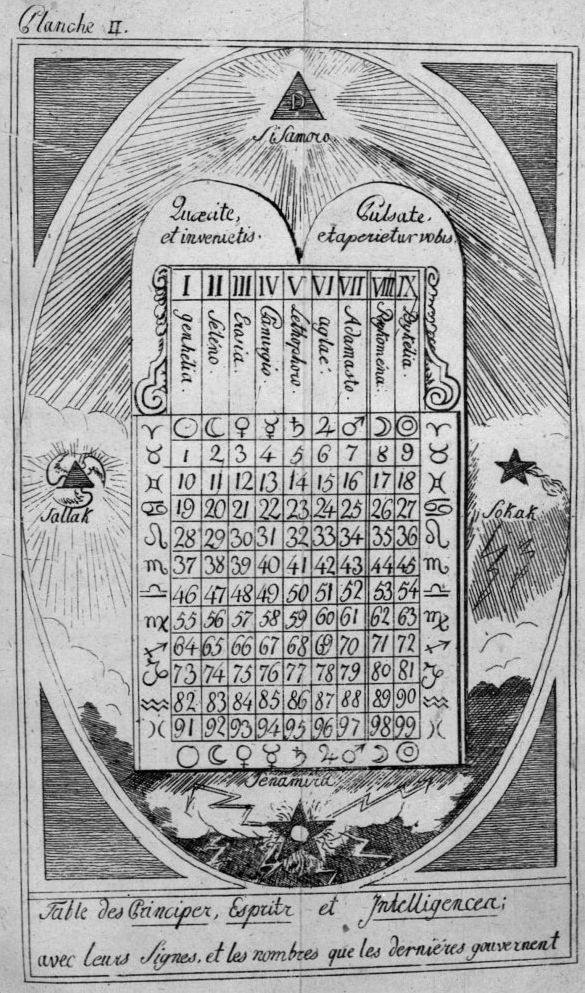 Planche II.
D
SiSamoro
Quærite,
et invenietis.
Pulsate,
et aperietur vobis.
I II III IV V VI VII VIII IX
genhelia. Seleno. Erosia. Panurgio. Lethophoro. aglae. Adamasto. Psykomena. Psykelia.
♈ ☉ ☾ ♀ ☿ ♄ ♃ ♂ ☽ ◎ ♈
♉ 1 2 3 4 5 6 7 8 9 ♉
♊ 10 11 12 13 14 15 16 17 18 ♊
♋ 19 20 21 22 23 24 25 26 27 ♋
♌ 28 29 30 31 32 33 34 35 36 ♌
♏ 37 38 39 40 41 42 43 44 45 ♏
♎ 46 47 48 49 50 51 52 53 54 ♎
♍ 55 56 57 58 59 60 61 62 63 ♍
♐ 64 65 66 67 68 69 70 71 72 ♐
♑ 73 74 75 76 77 78 79 80 81 ♑
♒ 82 83 84 85 86 87 88 89 90 ♒
♓ 91 92 93 94 95 96 97 98 99 ♓
☉ ☾ ♀ ☿ ♄ ♃ ♂ ☽ ◎
Sallak
Sokak
Senamira.
Table des Principes, Esprits et Intelligences;
avec leurs Signes, et les nombres que les dernières gouvernent